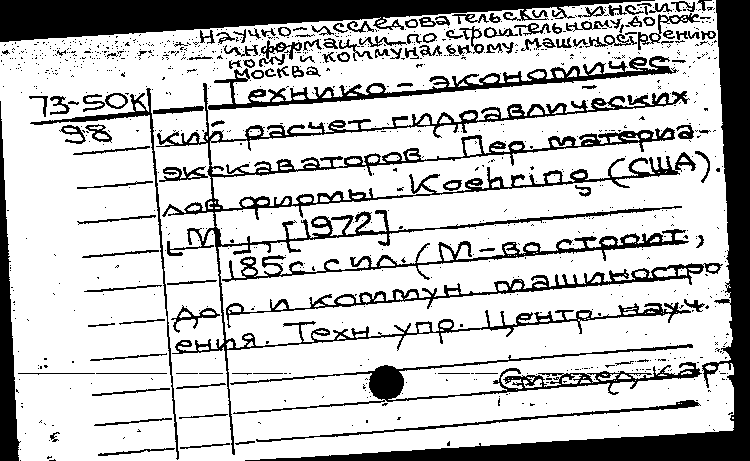 Научно-исследовательский институт
информации по строительному, дорож-
ному и коммунальному машиностроению
Москва.
73-50К
98
Технико-экономичес-
кий расчет гидравлических
экскаваторов. Пер. материа-
лов фирмы Koehring (США).
[М.], [1972].
185с. с ил. (М-во строит.,
дор. и коммун. машиностро
ения. Техн. упр. Центр. науч.-
См след. карт